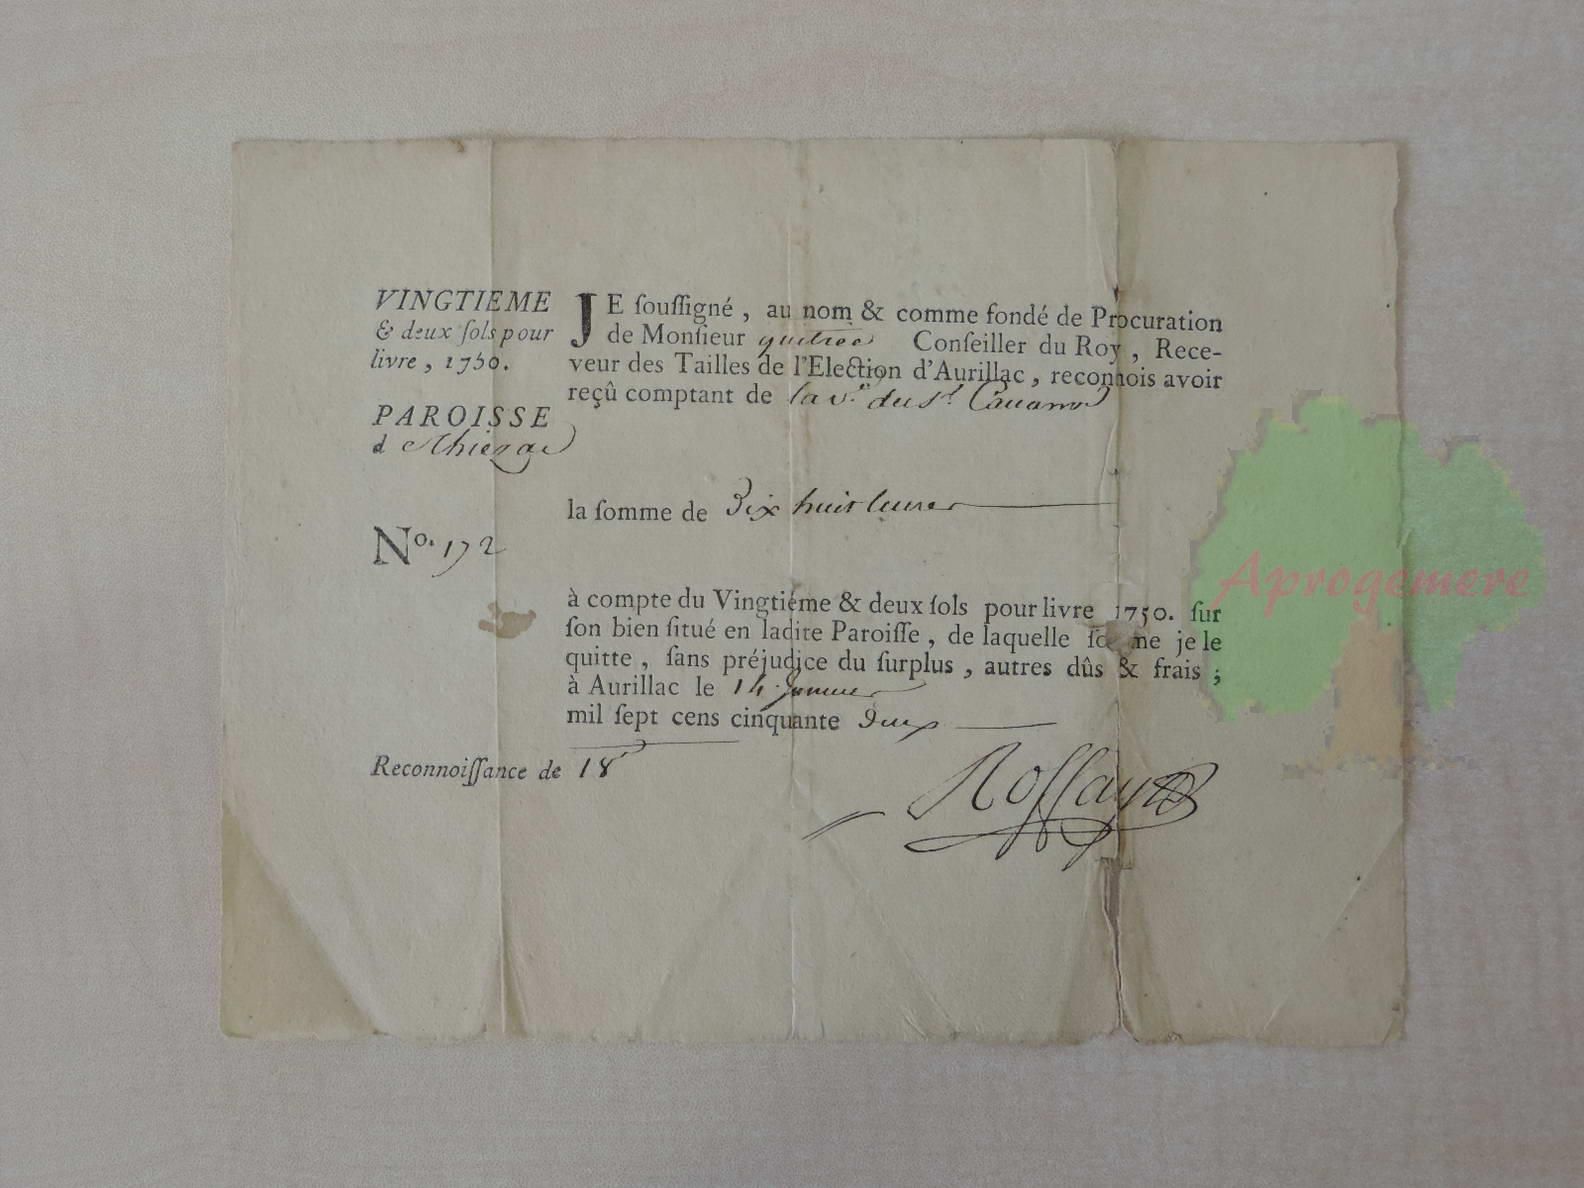 VINGTIEME
& deux ſols pour
livre, 1750.
PAROISSE
d Thiezac
Nº. 172
JE ſouſſigné, au nom & comme fondé de Procuration
de Monſieur Conſeiller du Roy, Rece-
veur des Tailles de l'Election d'Aurillac, reconnois avoir
reçû comptant de la v.e du s.r
la ſomme de Dix huit livres
à compte du Vingtiéme & deux ſols pour livre 1750. ſur
ſon bien ſitué en ladite Paroiſſe, de laquelle ſomme je le
quitte, ſans préjudice du ſurplus, autres dûs & frais;
à Aurillac le 14 Janvier
mil ſept cens cinquante Deux
Reconnoiſſance de 18
Aprogemere